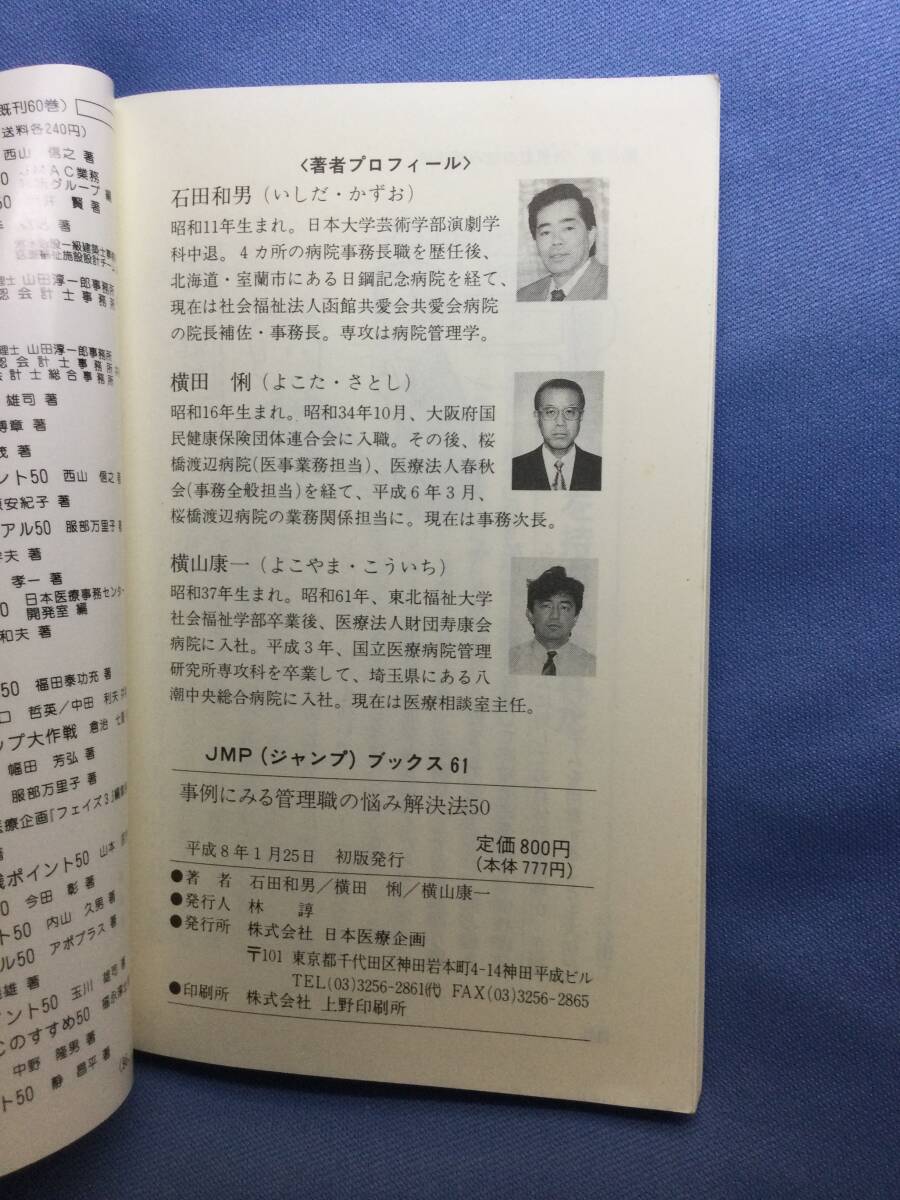 既刊60巻）
送料各240円）
西山　信之 著
MAC業務
グループ 編
50　　賢 著
著
山田淳一郎事務所
認会計士事務所
理士 山田淳一郎事務所
認会計士事務所
会計士総合事務所
雄司 著
博章 著
茂 著
ント50　西山　信之 著
安紀子 著
アル50　服部万里子 著
夫 著
孝一 著
0　日本医療事務センター
開発室 編
和夫 著
50　福田泰功充 著
口　哲英／中田　利夫
ップ大作戦　倉治
幅田　芳弘 著
服部万里子 著
医療企画『フェイズ3』編集
著
ポイント50　山本
0　今田　彰 著
ト50　内山　久男 著
ル50　アポプラス 著
雄 著
イント50　玉川　雄司
Cのすすめ50
中野　隆男 著
ト50　静　昌平 著
〈著者プロフィール〉
石田和男（いしだ・かずお）
昭和11年生まれ。日本大学芸術学部演劇学
科中退。４カ所の病院事務長職を歴任後、
北海道・室蘭市にある日鋼記念病院を経て、
現在は社会福祉法人函館共愛会共愛会病院
の院長補佐・事務長。専攻は病院管理学。
横田　悧（よこた・さとし）
昭和16年生まれ。昭和34年10月、大阪府国
民健康保険団体連合会に入職。その後、桜
橋渡辺病院(医事業務担当)、医療法人春秋
会(事務全般担当)を経て、平成６年３月、
桜橋渡辺病院の業務関係担当に。現在は事務次長。
横山康一（よこやま・こういち）
昭和37年生まれ。昭和61年、東北福祉大学
社会福祉学部卒業後、医療法人財団寿康会
病院に入社。平成３年、国立医療病院管理
研究所専攻科を卒業して、埼玉県にある八
潮中央総合病院に入社。現在は医療相談室主任。
JMP（ジャンプ）ブックス61
事例にみる管理職の悩み解決法50
定価800円
（本体777円）
平成８年１月25日　初版発行
●著　者　石田和男／横田　悧／横山康一
●発行人　林　諄
●発行所　株式会社 日本医療企画
〒101 東京都千代田区神田岩本町4-14神田平成ビル
TEL(03)3256-2861㈹ FAX(03)3256-2865
●印刷所　株式会社 上野印刷所